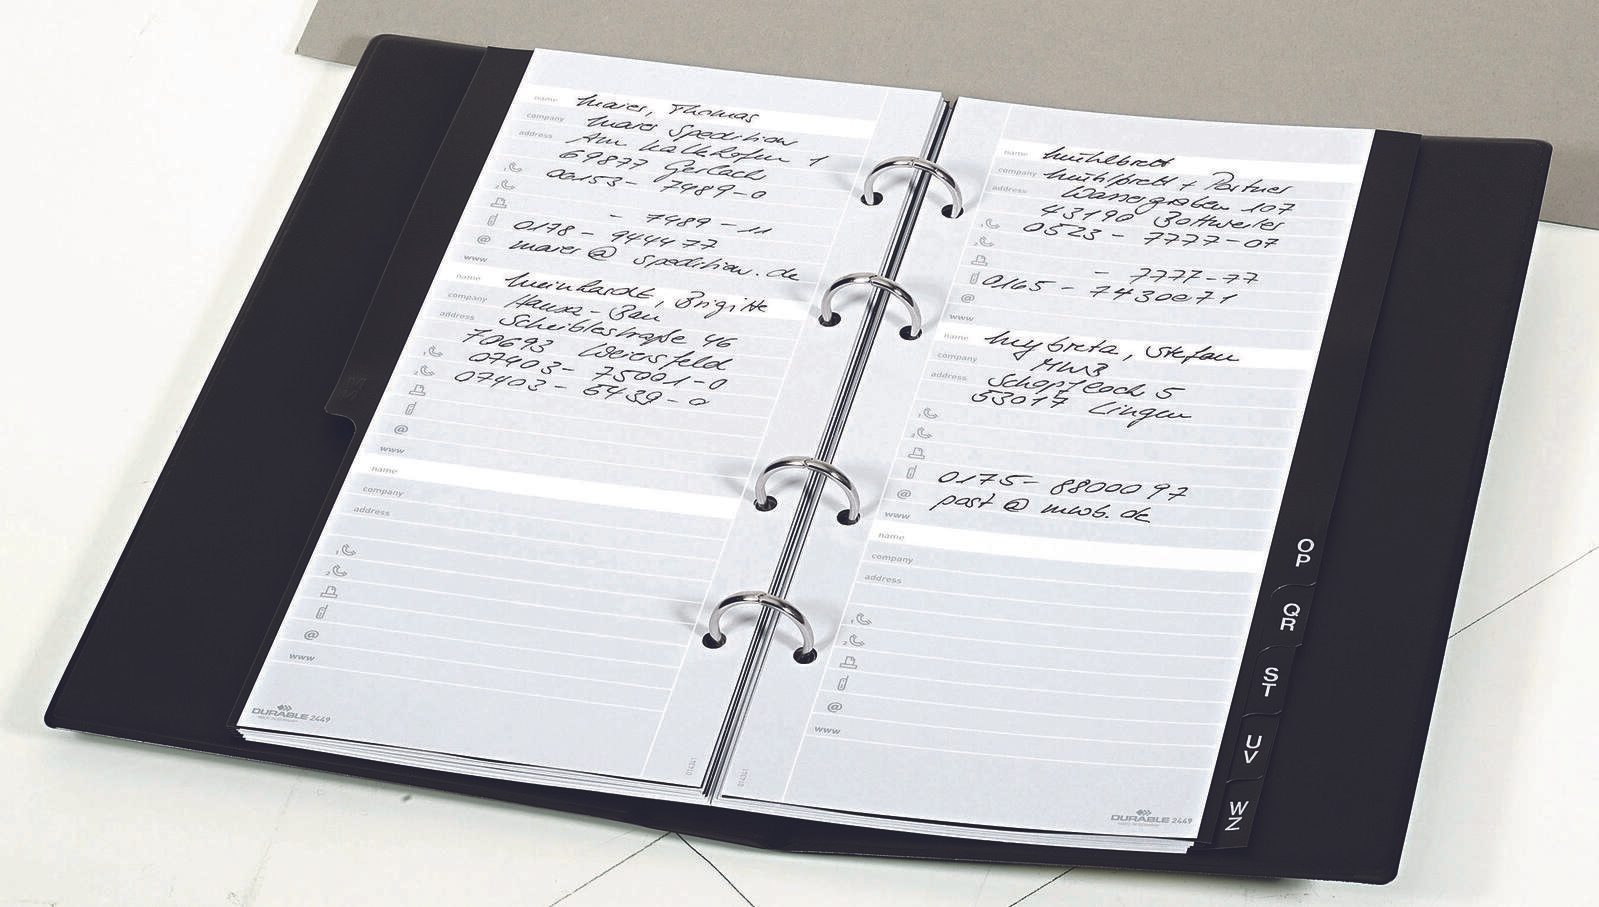 name Maier, Thomas
company Maier Spedition
address Am Kalkhofen 1
69877 Gerlach
1 00153 - 7489-0
2
- 7489-11
0178 - 9444 77
@ maier@spedition.de
www
name Meinhardt, Brigitte
company Hansa-Bau
address Scheiblestraße 46
70693 Weiersfeld
1 07403 - 75001-0
2 07403 - 6439-0
@
www
name
company
address
1
2
@
www
DURABLE 2449
014341
name Mühlbrett
company Mühlbrett + Partner
address Wassergraben 107
43190 Bottweiler
1 0523 - 7777-07
2
- 7777-77
0165 - 7430071
@
www
name Mybreta, Stefan
company MWB
address Schopfloch 5
53017 Lingen
1
2
0175 - 8800097
@ post@mwb.de
www
name
company
address
1
2
@
www
014341
DURABLE 2449
OP
QR
ST
UV
WZ